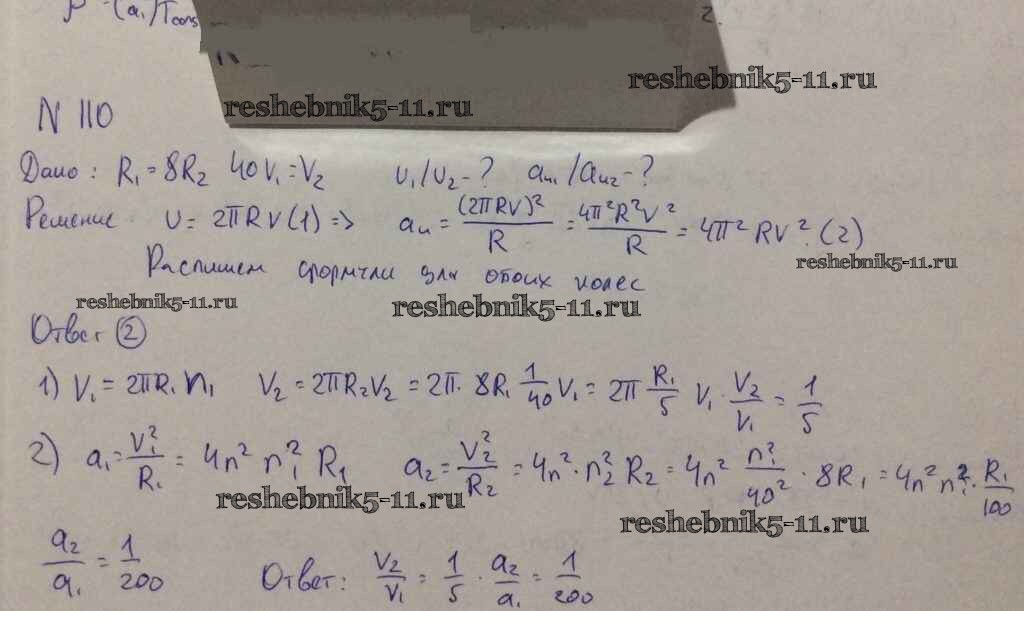 (a₁)Tcons 2.
reshebnik5-11.ru
reshebnik5-11.ru
N 110
Дано: R₁ = 8R₂ 40ν₁ = V₂ υ₁/υ₂ - ? aн₁/aн₂ - ?
Решение υ = 2πRν (1) => aн = (2πRν)²/R = 4π²R²ν²/R = 4π²Rν². (2)
reshebnik5-11.ru
Распишем формулы для обоих колес
reshebnik5-11.ru
reshebnik5-11.ru
Ответ ②
1) V₁ = 2πR₁n₁ V₂ = 2πR₂V₂ = 2π · 8R₁ 1/40 V₁ = 2π R₁/5 V₁ · V₂/V₁ = 1/5
2) a₁ = V₁²/R₁ = 4n² n₁² R₁ a₂ = V₂²/R₂ = 4n² · n₂² R₂ = 4n² n₁²/40² · 8R₁ = 4n² n₁² · R₁/100
reshebnik5-11.ru
reshebnik5-11.ru
a₂/a₁ = 1/200 Ответ: V₂/V₁ = 1/5 · a₂/a₁ = 1/200